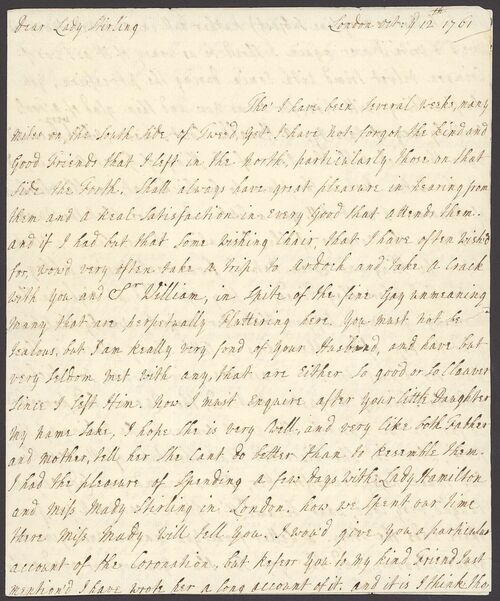 Dear Lady Stirling London Octr ye 12th 1761
Tho' I have been Several weeks, many
miles on the South Side of Tweed yet I have not forgot the kind and
Good Friends that I left in the North, particularly those on that
Side the Forth. Shall always have great pleasure in hearing from
them and a Real Satisfaction in every Good that attends them.
and if I had but that Some Wishing Chair, that I have often Wish'd
for, wou'd very often take a Trip to Ardoch and Take a Crack
with You and Sr William, in Spite of the fine Gay unmeaning
many that are perpetually Fluttering here. You must not be
Jealous, but I am Really very fond of Your Husband, and have but
very Seldom met with any, that are Either So good or So Cleaver
Since I left Him. Now I must Enquire after Your Little Daughter
My name Sake, I hope She is very Well, and very like both Father
and Mother, tell her She Cant do better than to Resemble Them.
I had the pleasure of Spending a few Days with Lady Hamilton
and Miss Mady Stirling in London. how we Spent our Time
there Miss Mady Will tell You. I wou'd give You a particular
account of the Coronation, but Refers You to my kind Friend Just
mention'd I have wrote her a long account of it. and it is I think the